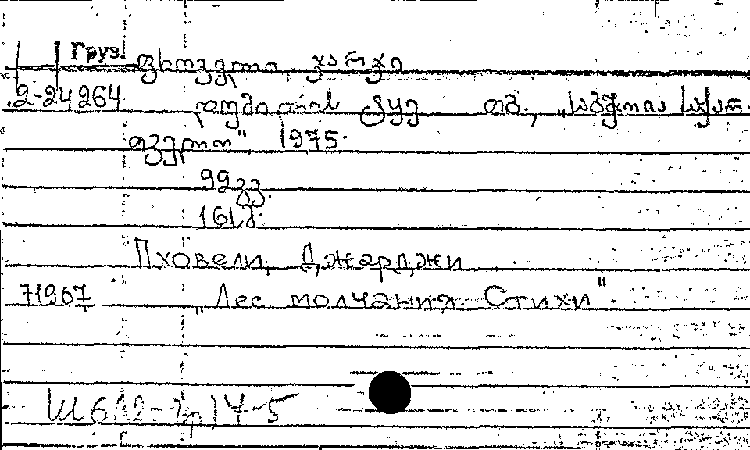 Груз.
ფხოველი, ჯარჯი
2-24264 დუმილის ტყე თბ., „საბჭოთა საქარ.
თველო", 1975.
99გვ.
16სმ.
Пховели, Джарджи
71967 „Лес молчания. Стихи"